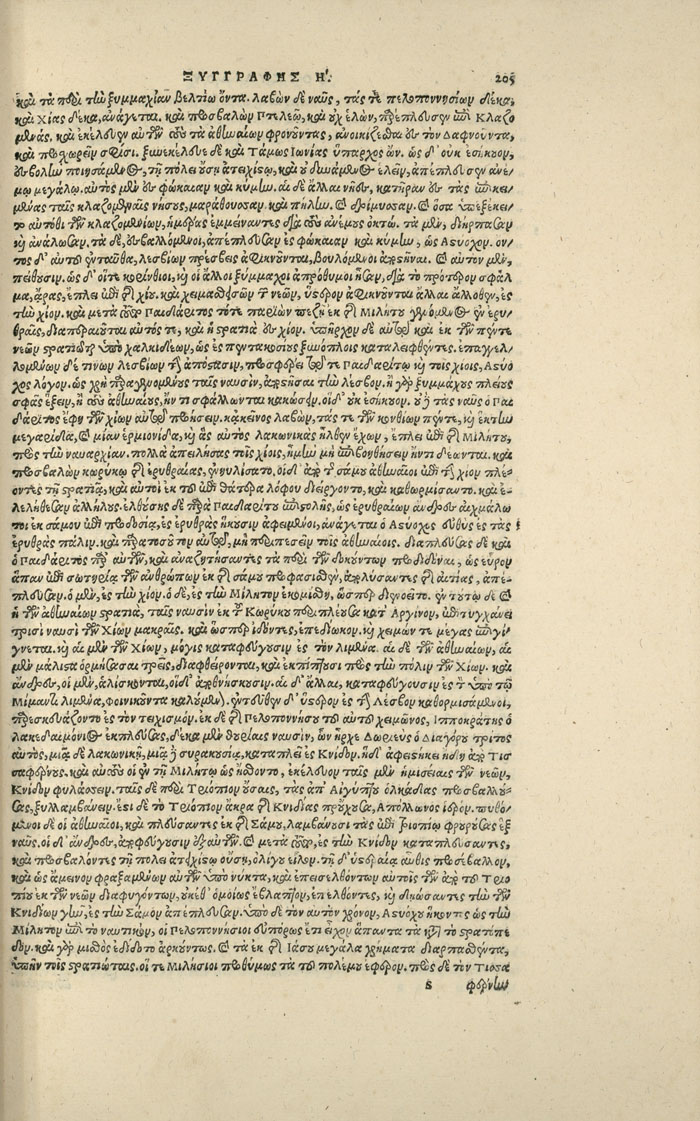 ΞΥΓΓΡΑΦΗΣ Η. 205
καὶ τὰ περὶ τὴν ξυμμαχίαν βελτίω ὄντα. λαβὼν δὲ ναῦς, τάς τε πελοποννησίων δέκα,
καὶ Χίας δέκα, ἀνάγεται. καὶ προσβαλὼν Πτελεῷ, καὶ οὐχ ἑλὼν, παρέπλευσεν ἐπὶ Κλαζο
μενάς. καὶ ἐκέλευεν αὐτῶν τοὺς τὰ ἀθηναίων φρονοῦντας, ἀνοικίζεσθαι ἐς τὸν Δαφνοῦντα,
καὶ προσχωρεῖν σφίσι. ξυνεκέλευε δὲ καὶ Τάμως Ἰωνίας ὕπαρχος ὤν. ὡς δ' οὐκ ἐσήκουον,
ἐσβολὴν ποιησάμενος, τῇ πόλει οὔσῃ ἀτειχίστῳ, καὶ οὐ δυνάμενος ἑλεῖν, ἀπέπλευσεν ἀνέ-
μῳ μεγάλῳ. αὐτὸς μὲν ἐς φώκαιαν καὶ κύμην. αἱ δὲ ἄλλαι νῆες, κατῆραν ἐς τὰς ἐπικει-
μένας ταῖς κλαζομεναῖς νήσους, μαράθουσαν καὶ πήλην. καὶ δρίμυσαν. καὶ ὅσα ὑπεξέκει-
το αὐτόθι τῶν κλαζομενίων, ἡμέρας ἐμμείναντες διὰ τοὺς ἀνέμους ὀκτώ. τὰ μὲν, διήρπασαν
καὶ ἀνάλωσαν. τὰ δὲ, ἐσβαλλόμενοι, ἀπέπλευσαν ἐς φώκαιαν καὶ κύμην, ὡς Ἀστύοχον. ὄν-
τος δ' αὐτοῦ ἐνταῦθα, λεσβίων πρέσβεις ἀφικνοῦνται, βουλόμενοι ἀποστῆναι. καὶ αὐτὸν μὲν,
πείθουσιν. ὡς δ' οἵ τε κορίνθιοι, καὶ οἱ ἄλλοι ξύμμαχοι ἀπρόθυμοι ἦσαν, διὰ τὸ πρότερον σφάλ
μα, ἄρας, ἔπλει ἐπὶ τῆς χίου. καὶ χειμασθεισῶν τῶν νεῶν, ὕστερον ἀφικνοῦνται ἄλλαι ἄλλοθεν, ἐς
τὴν χίον. καὶ μετὰ τοῦτο Παιδάριτος τότε παριὼν πεζῇ ἐκ τῆς Μιλήτου γενόμενος ἐν ἐρυ-
θραῖς, διαπεραιοῦται αὐτός τε, καὶ ἡ στρατιὰ ἐς χίον. ὑπῆρχον δὲ αὐτῷ καὶ ἐκ τῶν πέντε
νεῶν στρατιῶται ὑπὸ χαλκιδέως, ὡς ἐς πεντακοσίους ξὺν ὅπλοις καταλειφθέντες. ἐπαγγελ-
λομένων δέ τινων λεσβίων τὴν ἀπόστασιν, προσφέρει τῷ τε Παιδαρίτῳ καὶ τοῖς χίοις, Ἀστύο
χος λόγον, ὡς χρὴ παραγενομένους ταῖς ναυσὶν, ἀποστῆσαι τὴν λέσβον. ἢ γὰρ ξυμμάχους πλείους
σφᾶς ἕξειν, ἢ τοὺς ἀθηναίους, ἤν τι σφάλλωνται κακώσειν. οἱ δ' οὐκ ἐσήκουον. οὐδὲ τὰς ναῦς ὁ Παι
δάριτος ἔφη τῶν χίων αὐτῷ προήσειν. κἀκεῖνος λαβὼν, τάς τε τῶν κορινθίων πέντε, καὶ ἕκτην
μεγαρίδα, καὶ μίαν ἑρμιονίδα, καὶ ἃς αὐτὸς λακωνικὰς ἦλθεν ἔχων, ἔπλει ἐπὶ τῆς Μιλήτου,
πρὸς τὴν ναυαρχίαν. πολλὰ ἀπειλήσας τοῖς χίοις, ἦ μὴν μὴ ἐπιβοηθήσειν ἤν τι δέωνται. καὶ
προσβαλὼν κωρύκῳ τῆς ἐρυθραίας, ἐνηυλίσατο. οἱ δὲ ἀπὸ τῆς σάμου ἀθηναῖοι ἐπὶ τὴν χίον πλέ-
οντες τῇ στρατιᾷ, καὶ αὐτοὶ ἐκ τοῦ ἐπὶ θάτερα λόφου διείργοντο, καὶ καθωρμίσαντο. καὶ ἐ-
λελήθεσαν ἀλλήλους. ἐλθούσης δὲ παρὰ Παιδαρίτου ἐπιστολῆς, ὡς ἐρυθραίων ἄνδρες αἰχμάλω
τοι ἐκ σάμου ἐπὶ προδοσίᾳ, ἐς ἐρυθρὰς ἥκουσιν ἀφειμένοι, ἀνάγεται ὁ Ἀστύοχος εὐθὺς ἐς τὰς
ἐρυθρὰς πάλιν. καὶ παρὰ τοσοῦτον αὐτῷ, μὴ περιπεσεῖν τοῖς ἀθηναίοις. διαπλεύσας δὲ καὶ
ὁ Παιδάριτος παρ' αὐτὸν, καὶ ἀναζητήσαντες τὰ περὶ τῶν δοκούντων προδιδόναι, ὡς εὗρον
ἅπαν ἐπὶ σωτηρίᾳ τῶν ἀνθρώπων ἐκ τῆς σάμου προφασισθὲν, ἀπολύσαντες τῆς αἰτίας, ἀπέ-
πλευσαν. ὁ μὲν, ἐς τὴν χίον. ὁ δὲ, ἐς τὴν Μίλητον ἐκομίσθη, ὥσπερ διενοεῖτο. ἐν τούτῳ δὲ καὶ
ἡ τῶν ἀθηναίων στρατιὰ, ταῖς ναυσὶν ἐκ τοῦ Κωρύκου περιπλέουσα κατ' Ἀργῖνον, ἐπιτυγχάνει
τρισὶ ναυσὶ τῶν Χίων μακραῖς. καὶ ὥσπερ ἰδόντες, ἐπεδίωκον. καὶ χειμών τε μέγας ἐπιγί-
γνεται. καὶ αἱ μὲν τῶν Χίων, μόγις καταφεύγουσιν ἐς τὸν λιμένα. αἱ δὲ τῶν ἀθηναίων, αἱ
μὲν μάλιστα ὁρμήσασαι τρεῖς, διαφθείρονται, καὶ ἐκπίπτουσι πρὸς τὴν πόλιν τῶν Χίων. καὶ
ἄνδρες, οἱ μὲν, ἁλίσκονται, οἱ δ' ἀποθνήσκουσιν. αἱ δ' ἄλλαι, καταφεύγουσιν ἐς τὸν ὑπὸ τῷ
Μίμαντι λιμένα, φοινικοῦντα καλούμενον. ἐντεῦθεν δ' ὕστερον ἐς τὴν Λέσβον καθορμισάμενοι,
παρεσκευάζοντο ἐς τὸν τειχισμόν. ἐκ δὲ τῆς Πελοποννήσου τοῦ αὐτοῦ χειμῶνος, Ἱπποκράτης ὁ
λακεδαιμόνιος ἐκπλεύσας, δέκα μὲν θουρίαις ναυσὶν, ὧν ἦρχε Δωριεὺς ὁ Διαγόρου τρίτος
αὐτὸς, μιᾷ δὲ λακωνικῇ, μιᾷ δὲ συρακουσίᾳ, καταπλεῖ ἐς Κνίδον. ἡ δ' ἀφειστήκει ἤδη ἀπὸ Τισ
σαφέρνους. καὶ αὐτοὺς οἱ ἐν τῇ Μιλήτῳ ὡς ᾔσθοντο, ἐκέλευον ταῖς μὲν ἡμισείαις τῶν νεῶν,
Κνίδον φυλάσσειν. ταῖς δὲ περὶ Τριόπιον οὔσαις, τὰς ἀπ' Αἰγύπτου ὁλκάδας προσβαλλού-
σας, ξυλλαμβάνειν. ἔστι δὲ τὸ Τριόπιον ἄκρα τῆς Κνιδίας προὔχουσα, Ἀπόλλωνος ἱερόν. πυθό-
μενοι δὲ οἱ ἀθηναῖοι, καὶ πλεύσαντες ἐκ τῆς Σάμου, λαμβάνουσι τὰς ἐπὶ τῷ Τριοπίῳ φρουρούσας ἓξ
ναῦς. οἱ δ' ἄνδρες, ἀποφεύγουσιν ἐξ αὐτῶν. καὶ μετὰ τοῦτο, ἐς τὴν Κνίδον καταπλεύσαντες,
καὶ προσβαλόντες τῇ πόλει ἀτειχίστῳ οὔσῃ, ὀλίγου εἷλον. τῇ δ' ὑστεραίᾳ αὖθις προσέβαλλον,
καὶ ὡς ἄμεινον φραξαμένων αὐτῶν ὑπὸ νύκτα, καὶ ἐπεισελθόντων αὐτοῖς τῶν ἀπὸ τοῦ Τριο
πίου ἐκ τῶν νεῶν διαφυγόντων, οὐκέθ' ὁμοίως ἔβλαπτον, ἐπελθόντες, καὶ δῃώσαντες τὴν τῶν
Κνιδίων γῆν, ἐς τὴν Σάμον ἀπέπλευσαν. ὑπὸ δὲ τὸν αὐτὸν χρόνον, Ἀστυόχου ἥκοντος ὡς τὴν
Μίλητον ἐπὶ τὸ ναυτικὸν, οἱ Πελοποννήσιοι εὐπόρως ἔτι εἶχον ἅπαντα τὰ κατὰ τὸ στρατόπε
δον. καὶ γὰρ μισθὸς ἐδίδοτο ἀρκούντως. καὶ τὰ ἐκ τῆς Ἰάσου μεγάλα χρήματα διαρπασθέντα,
ὑπῆν τοῖς στρατιώταις. οἵ τε Μιλήσιοι προθύμως τὰ τοῦ πολέμου ἔφερον. πρὸς δὲ τὸν Τισσα
s φέρνην